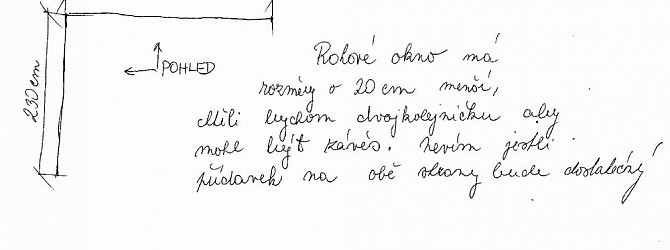 230cm
POHLED
Rolové okno má
rozměry o 20cm menší,
chtěli bychom dvojkolejničku aby
mohl být závěs. nevím jestli
přídavek na obě strany bude dostatečný